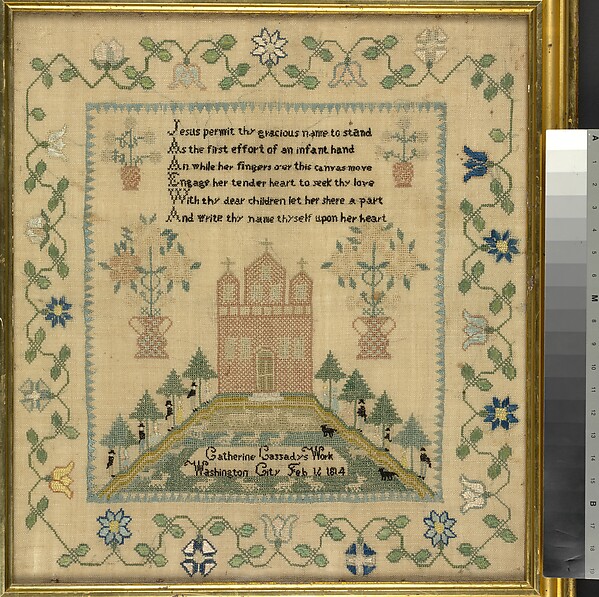 Jesus permit thy gracious name to stand
As the first effort of an infant hand
An while her fingers over this canvas move
Engage her tender heart to seek thy love
With thy dear children let her shere a part
And write thy name thyself upon her heart
Catherine Cassadys Work
Washington City Feb 16 1814
A
M
B